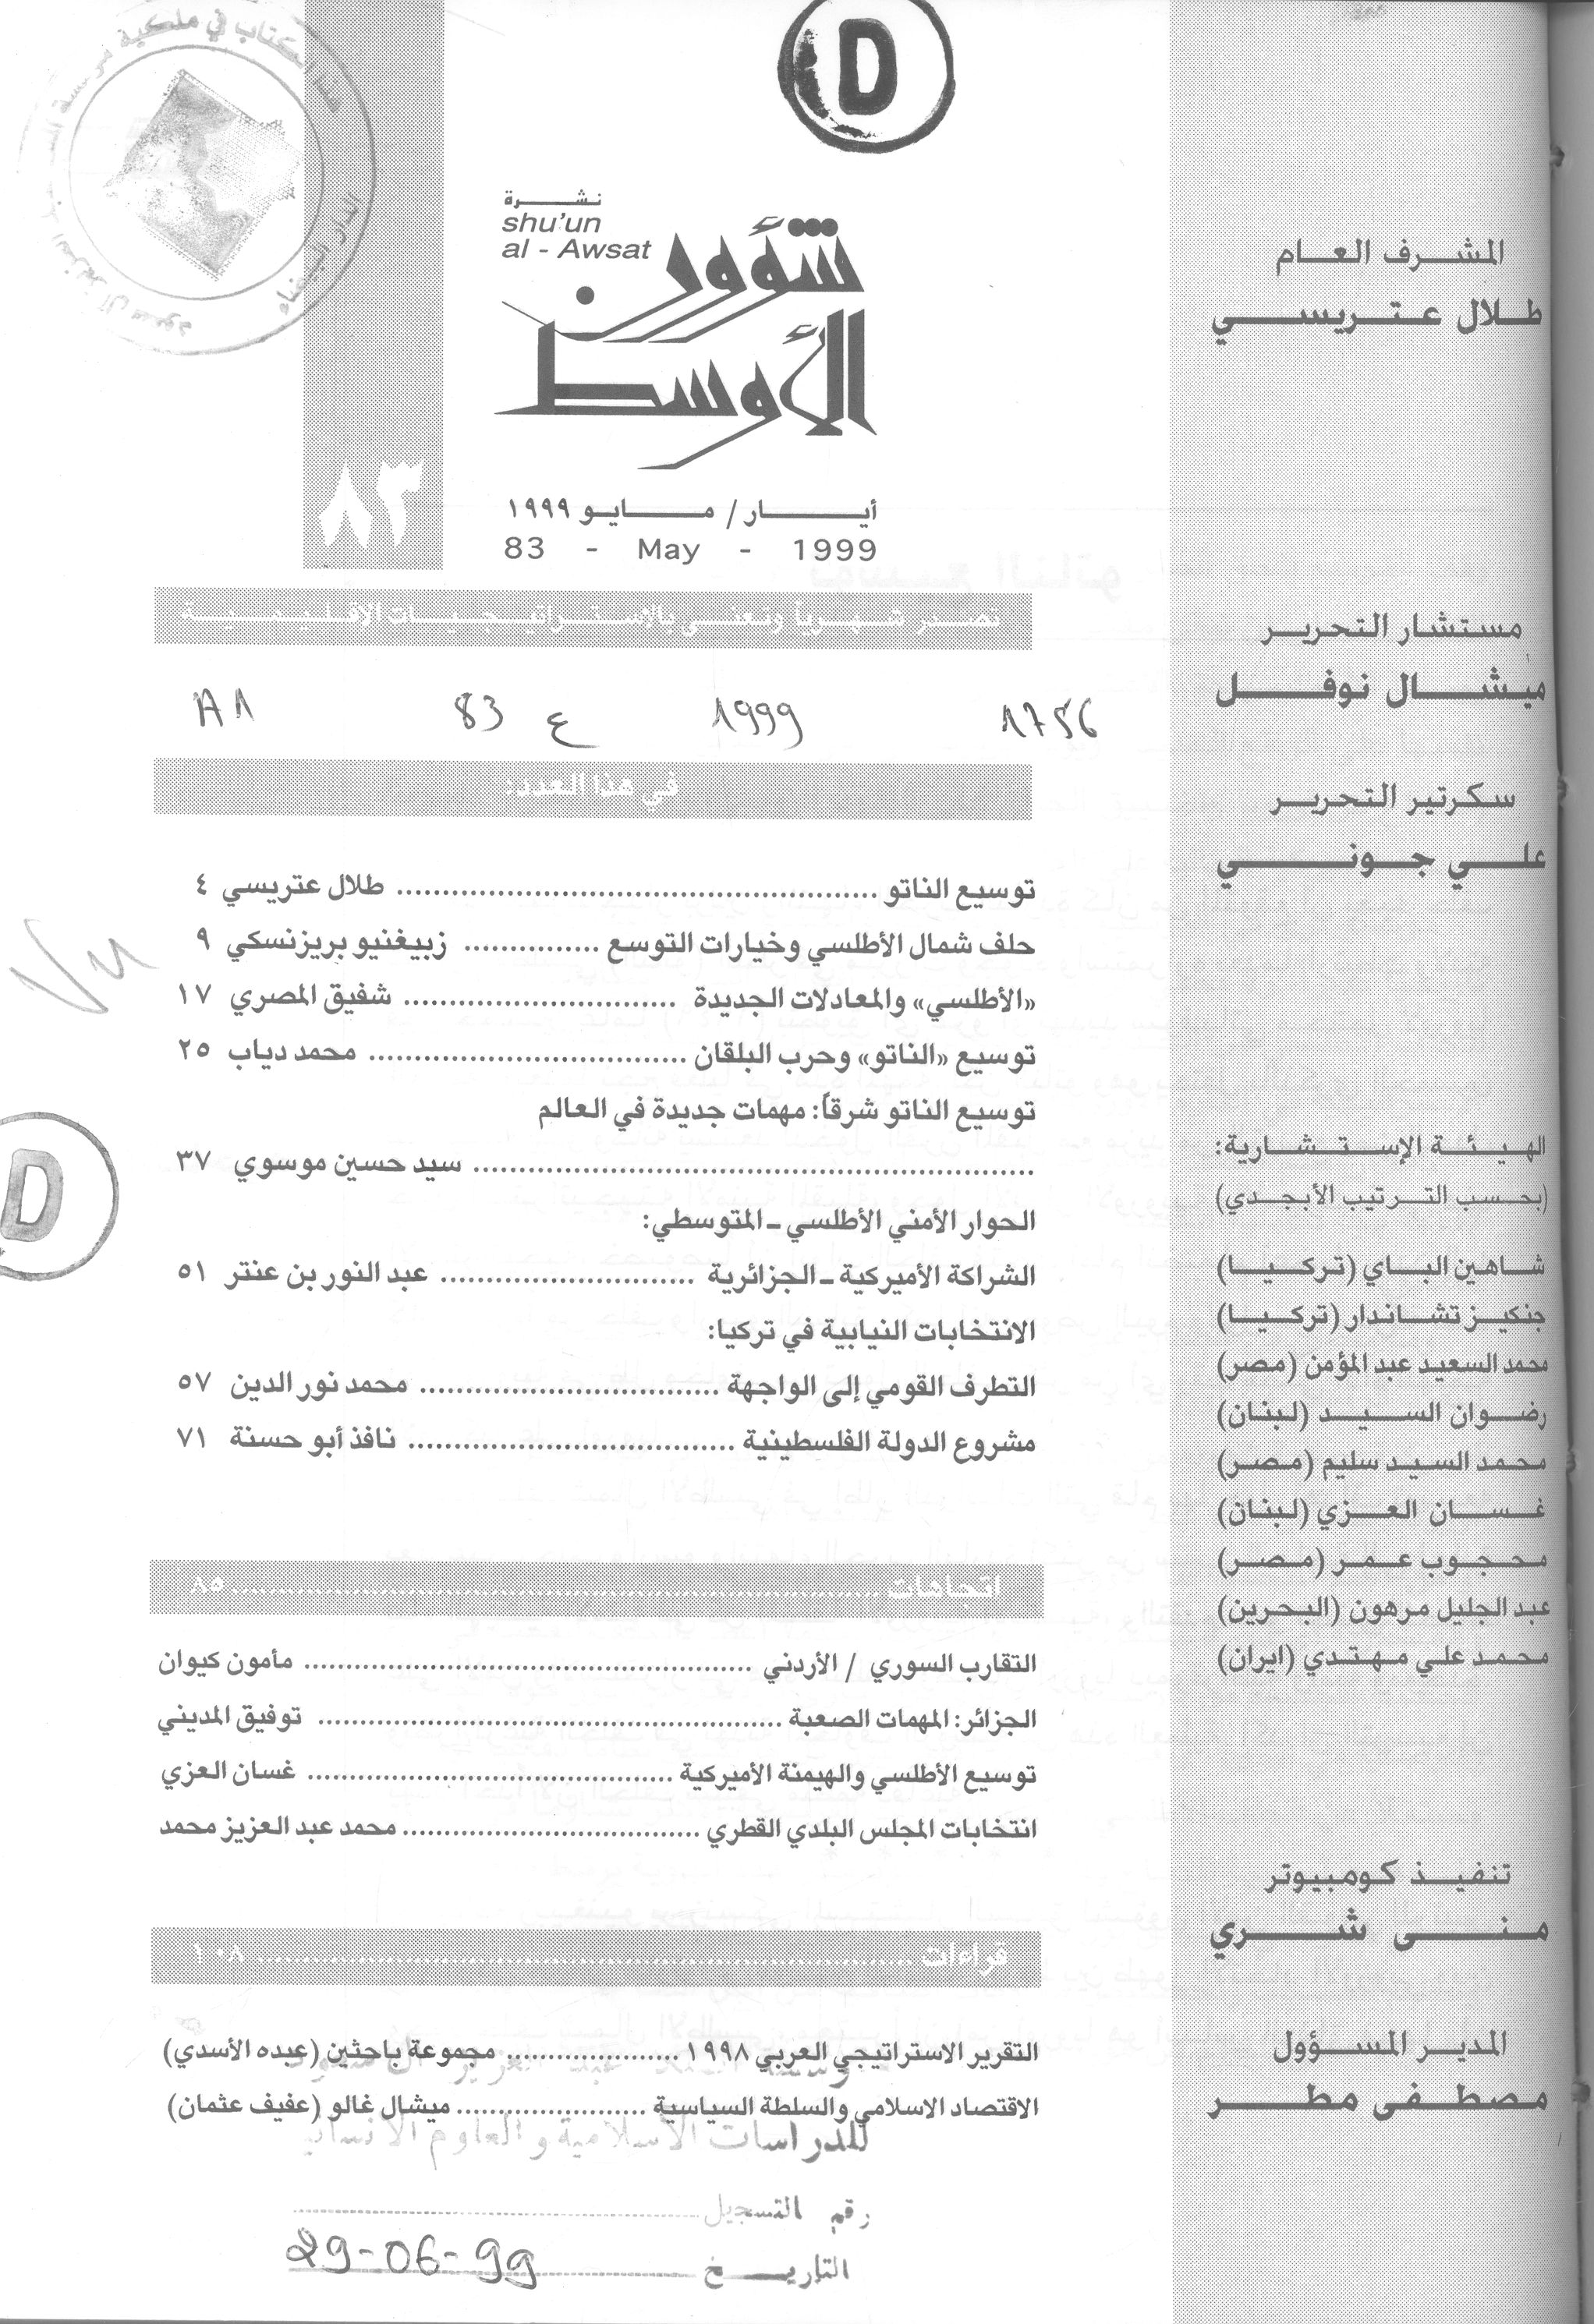 D
المشرف العام
طلال عتريسي
مستشار التحرير
ميشال نوفل
سكرتير التحرير
علي جوني
الهيئة الإستشارية:
(بحسب الترتيب الأبجدي)
شاهين الباي (تركيا)
جنكيز تشاندار (تركيا)
محمد السعيد عبد المؤمن (مصر)
رضوان السيد (لبنان)
محمد السيد سليم (مصر)
غسان العزي (لبنان)
محجوب عمر (مصر)
عبد الجليل مرهون (البحرين)
محمد علي مهتدي (ايران)
تنفيذ كومبيوتر
منى شري
المدير المسؤول
مصطفى مطر
نشرة
shu'un
al - Awsat
شؤون
الأوسط
٨٣
أيار / مايو ١٩٩٩
83 - May - 1999
تصدر شهرياً وتعنى بالاستراتيجيات الإقليمية
1756 1999 ع 83 A1
في هذا العدد:
توسيع الناتو ........ طلال عتريسي ٤
حلف شمال الأطلسي وخيارات التوسع ........ زبيغنيو بريزنسكي ٩
«الأطلسي» والمعادلات الجديدة ........ شفيق المصري ١٧
توسيع «الناتو» وحرب البلقان ........ محمد دياب ٢٥
توسيع الناتو شرقاً: مهمات جديدة في العالم
........ سيد حسين موسوي ٣٧
الحوار الأمني الأطلسي ـ المتوسطي:
الشراكة الأميركية ـ الجزائرية ........ عبد النور بن عنتر ٥١
الانتخابات النيابية في تركيا:
التطرف القومي إلى الواجهة ........ محمد نور الدين ٥٧
مشروع الدولة الفلسطينية ........ نافذ أبو حسنة ٧١
D
اتجاهات ........ ٨٥
التقارب السوري / الأردني ........ مأمون كيوان
الجزائر: المهمات الصعبة ........ توفيق المديني
توسيع الأطلسي والهيمنة الأميركية ........ غسان العزي
انتخابات المجلس البلدي القطري ........ محمد عبد العزيز محمد
قراءات ........ ١٠٨
التقرير الاستراتيجي العربي ١٩٩٨ ........ مجموعة باحثين (عبده الأسدي)
الاقتصاد الاسلامي والسلطة السياسية ........ ميشال غالو (عفيف عثمان)
للدراسات الاسلامية والعلوم الانسانية
رقم التسجيل
التاريخ 29-06-99